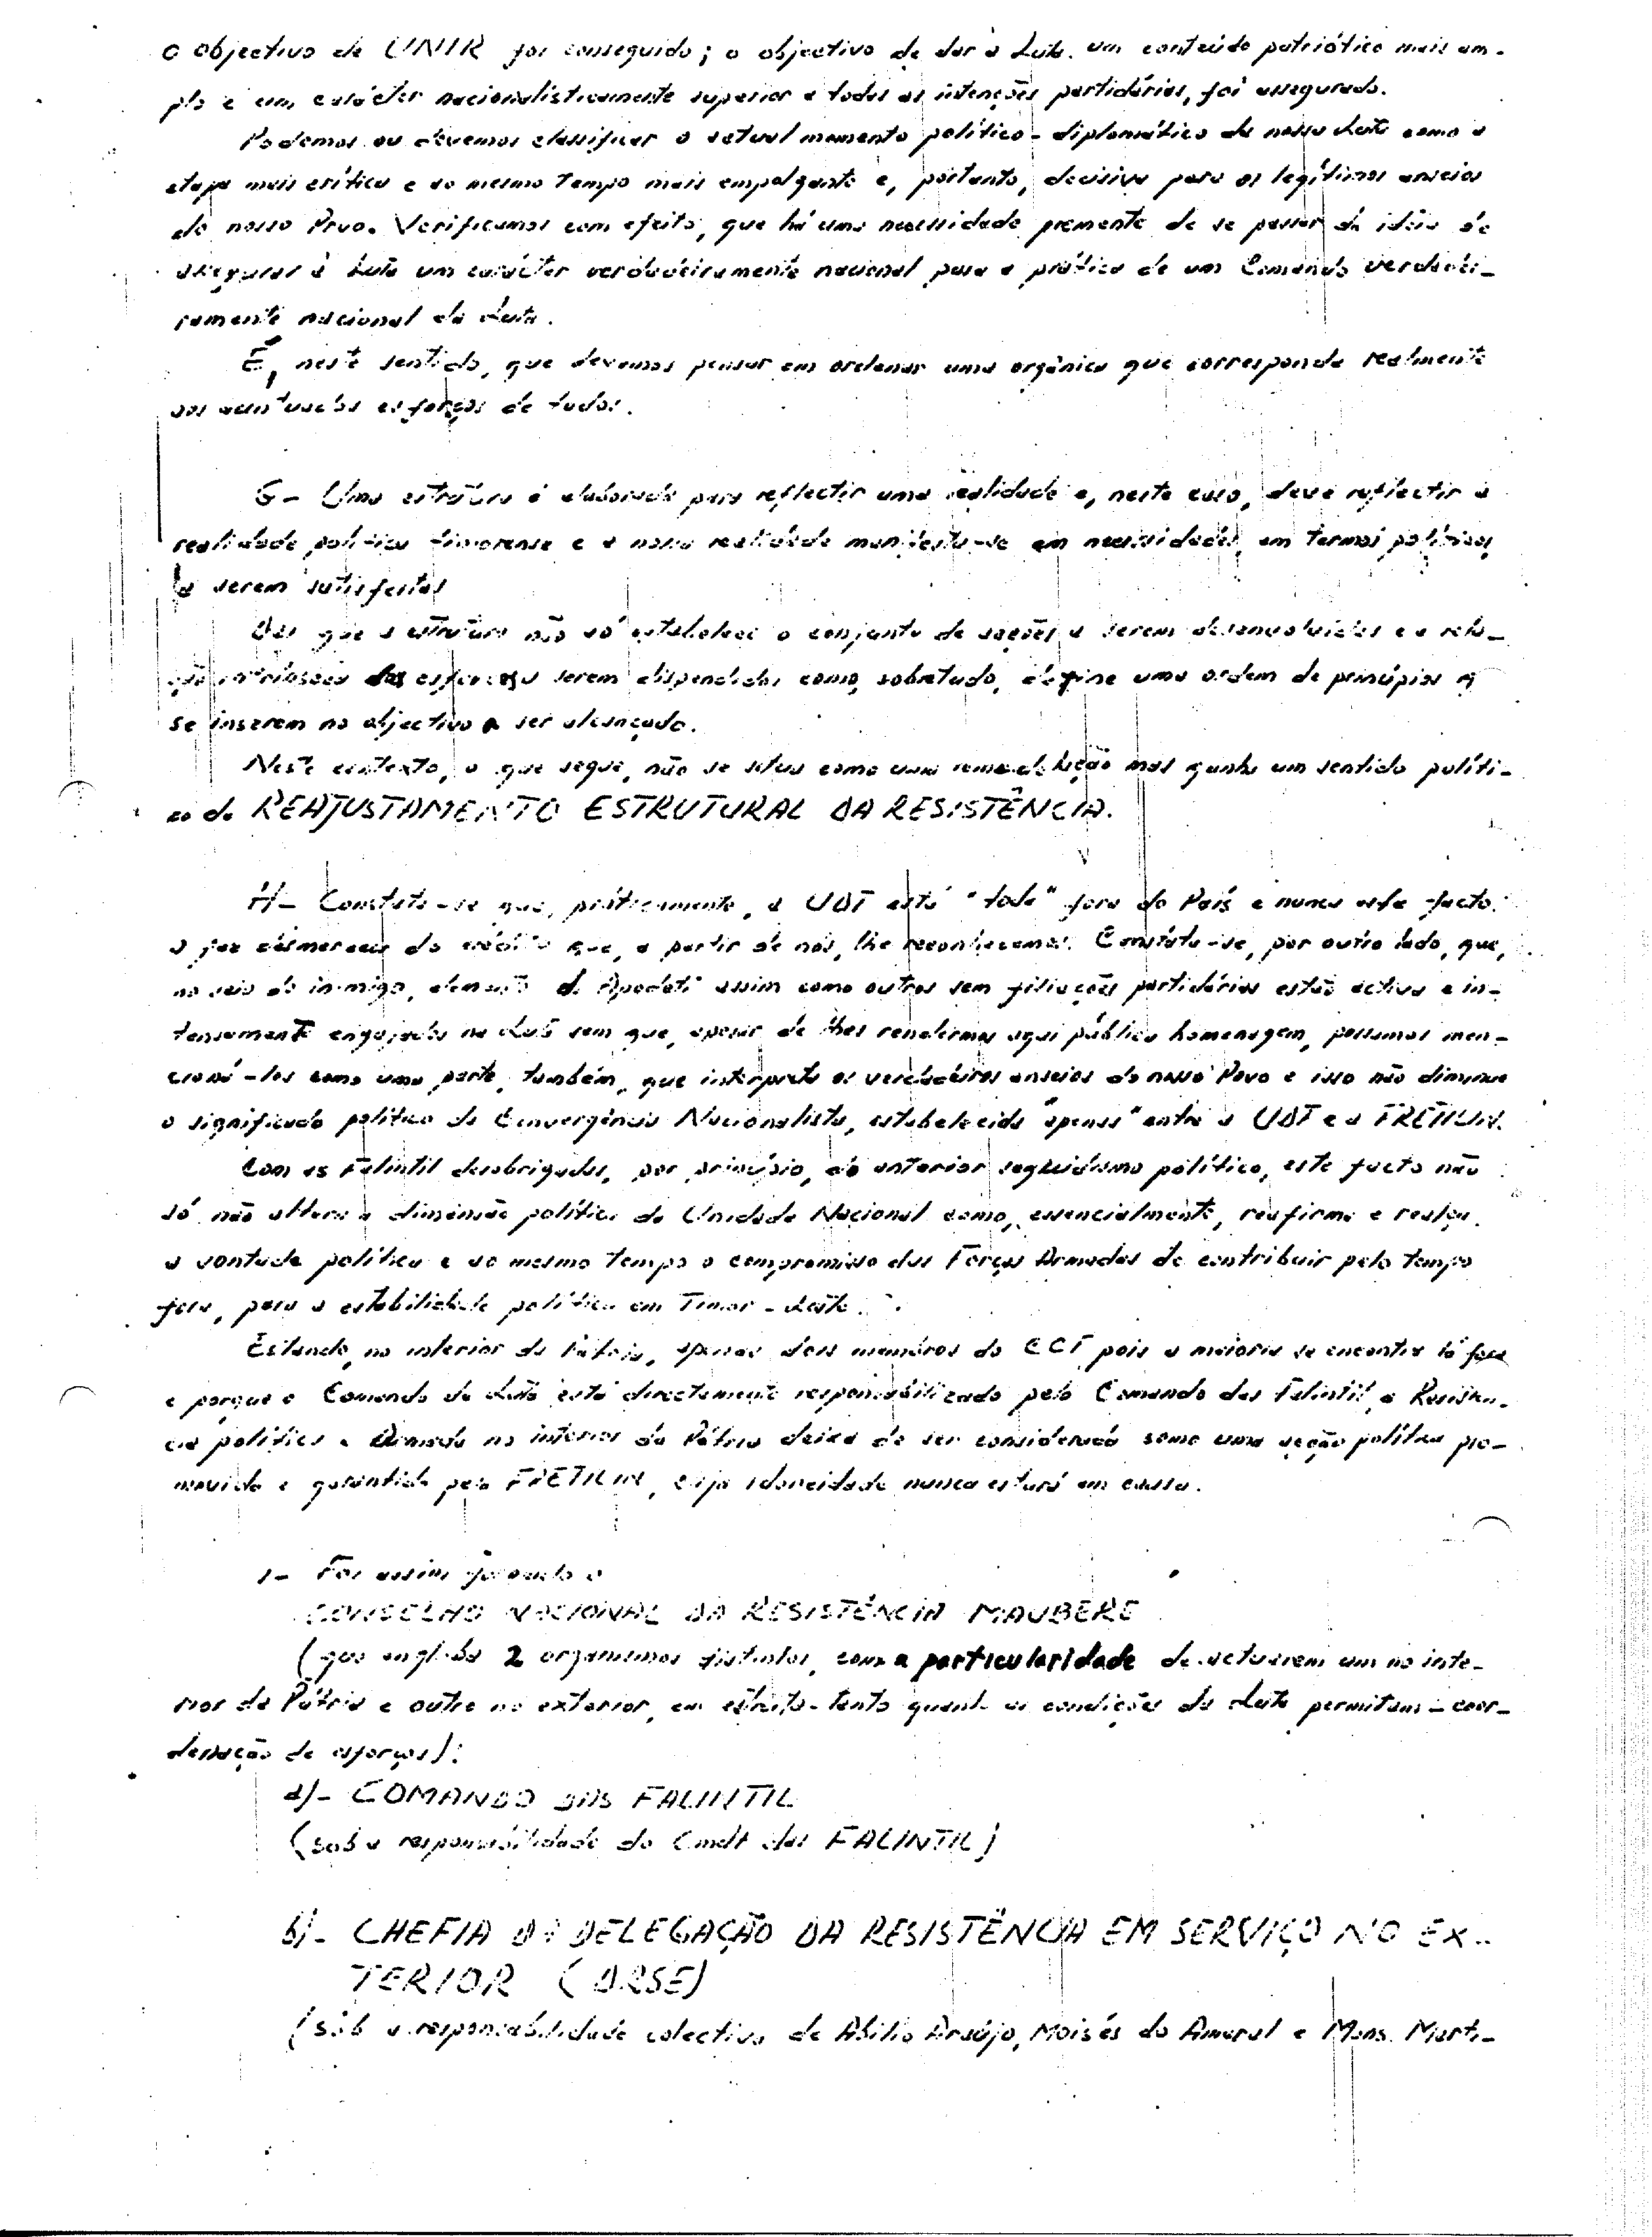 O objectivo de UNIR foi conseguido; o objectivo de dar à Luta um conteúdo patriótico mais am-
plo e um carácter nacionalisticamente superior a todas as intenções partidárias, foi assegurado.
Podemos ou devemos classificar o actual momento político-diplomático da nossa Luta como a
etapa mais crítica e ao mesmo tempo mais empolgante e, portanto, decisiva para os legítimos anseios
do nosso Pvo. Verificamos com efeito, que há uma necessidade premente de se passar da ideia de
assegurar à Luta um carácter verdadeiramente nacional para a prática de um Comando verdadei-
ramente nacional da Luta.
É, neste sentido, que devemos pensar em ordenar uma orgânica que corresponda realmente
aos acentuados esforços de todos.
G- Uma estrutura é elaborada para reflectir uma realidade e, neste caso, deve reflectir a
realidade política timorense e a nossa realidade manifesta-se em necessidades, em termos políticos,
a serem satisfeitas
que a estrutura não só estabelece o conjunto de acções a serem desenvolvidas e a rela-
ção dos esforços a serem dispendidos como, sobretudo, define uma ordem de princípios q
se inserem no objectivo a ser alcançado.
Neste contexto, o que segue, não se situa como uma remodelação mas ganha um sentido políti-
co do REAJUSTAMENTO ESTRUTURAL DA RESISTÊNCIA.
H- Constata-se que, práticamente, a UDT está "toda" fora do País e nunca este facto
a faz desmerecer do crédito que, a partir de nós, lhe reconhecemos. Constata-se, por outro lado, que,
no seio do inimigo, elementos da Apodeti assim como outros sem filiações partidárias estão activa e in-
tensamente engajados na Luta sem que, apesar de lhes rendermos aqui pública homenagem, possamos men-
cioná-los como uma parte, também, que interpreta os verdadeiros anseios do nosso Povo e isso não diminue
o significado político da Convergência Nacionalista, estabelecida "apenas" entre a UDT e a FRETILIN.
Com as Falintil desobrigadas, por princípio, do anterior seguidismo político, este facto não
só não altera a dimensão política da Unidade Nacional como, essencialmente, reafirma e realça
a vontade política e ao mesmo tempo o compromisso das Forças Armadas de contribuir pelo tempo
fora, para a estabilidade política em Timor-Leste.
Estando, no interior da Pátria, apenas dois membros do CCF pois a maioria se encontra lá fora
e porque o Comando da Luta está directamente responsabilizado pelo Comando das Falintil, a Resistên-
cia política e Armada no interior da Pátria deixa de ser considerada como uma acção política pro-
movida e garantida pela FRETILIN, cuja idoneidade nunca estará em causa.
I- Foi assim formado o
CONSELHO NACIONAL DA RESISTÊNCIA MAUBERE
(que engloba 2 organismos distintos, com a particularidade de actuarem um no inte-
rior da Pátria e outro no exterior, em estreita-tanto quanto as condições da Luta permitam-coor-
denação de esforços):
a)- COMANDO DAS FALINTIL
(sob a responsabilidade do Cmdt das FALINTIL)
b)- CHEFIA DA DELEGAÇÃO DA RESISTÊNCIA EM SERVIÇO NO EX-
TERIOR (DRSE)
(sob a responsabilidade colectiva de Abílio Araújo, Moisés do Amaral e Mons. Marti-